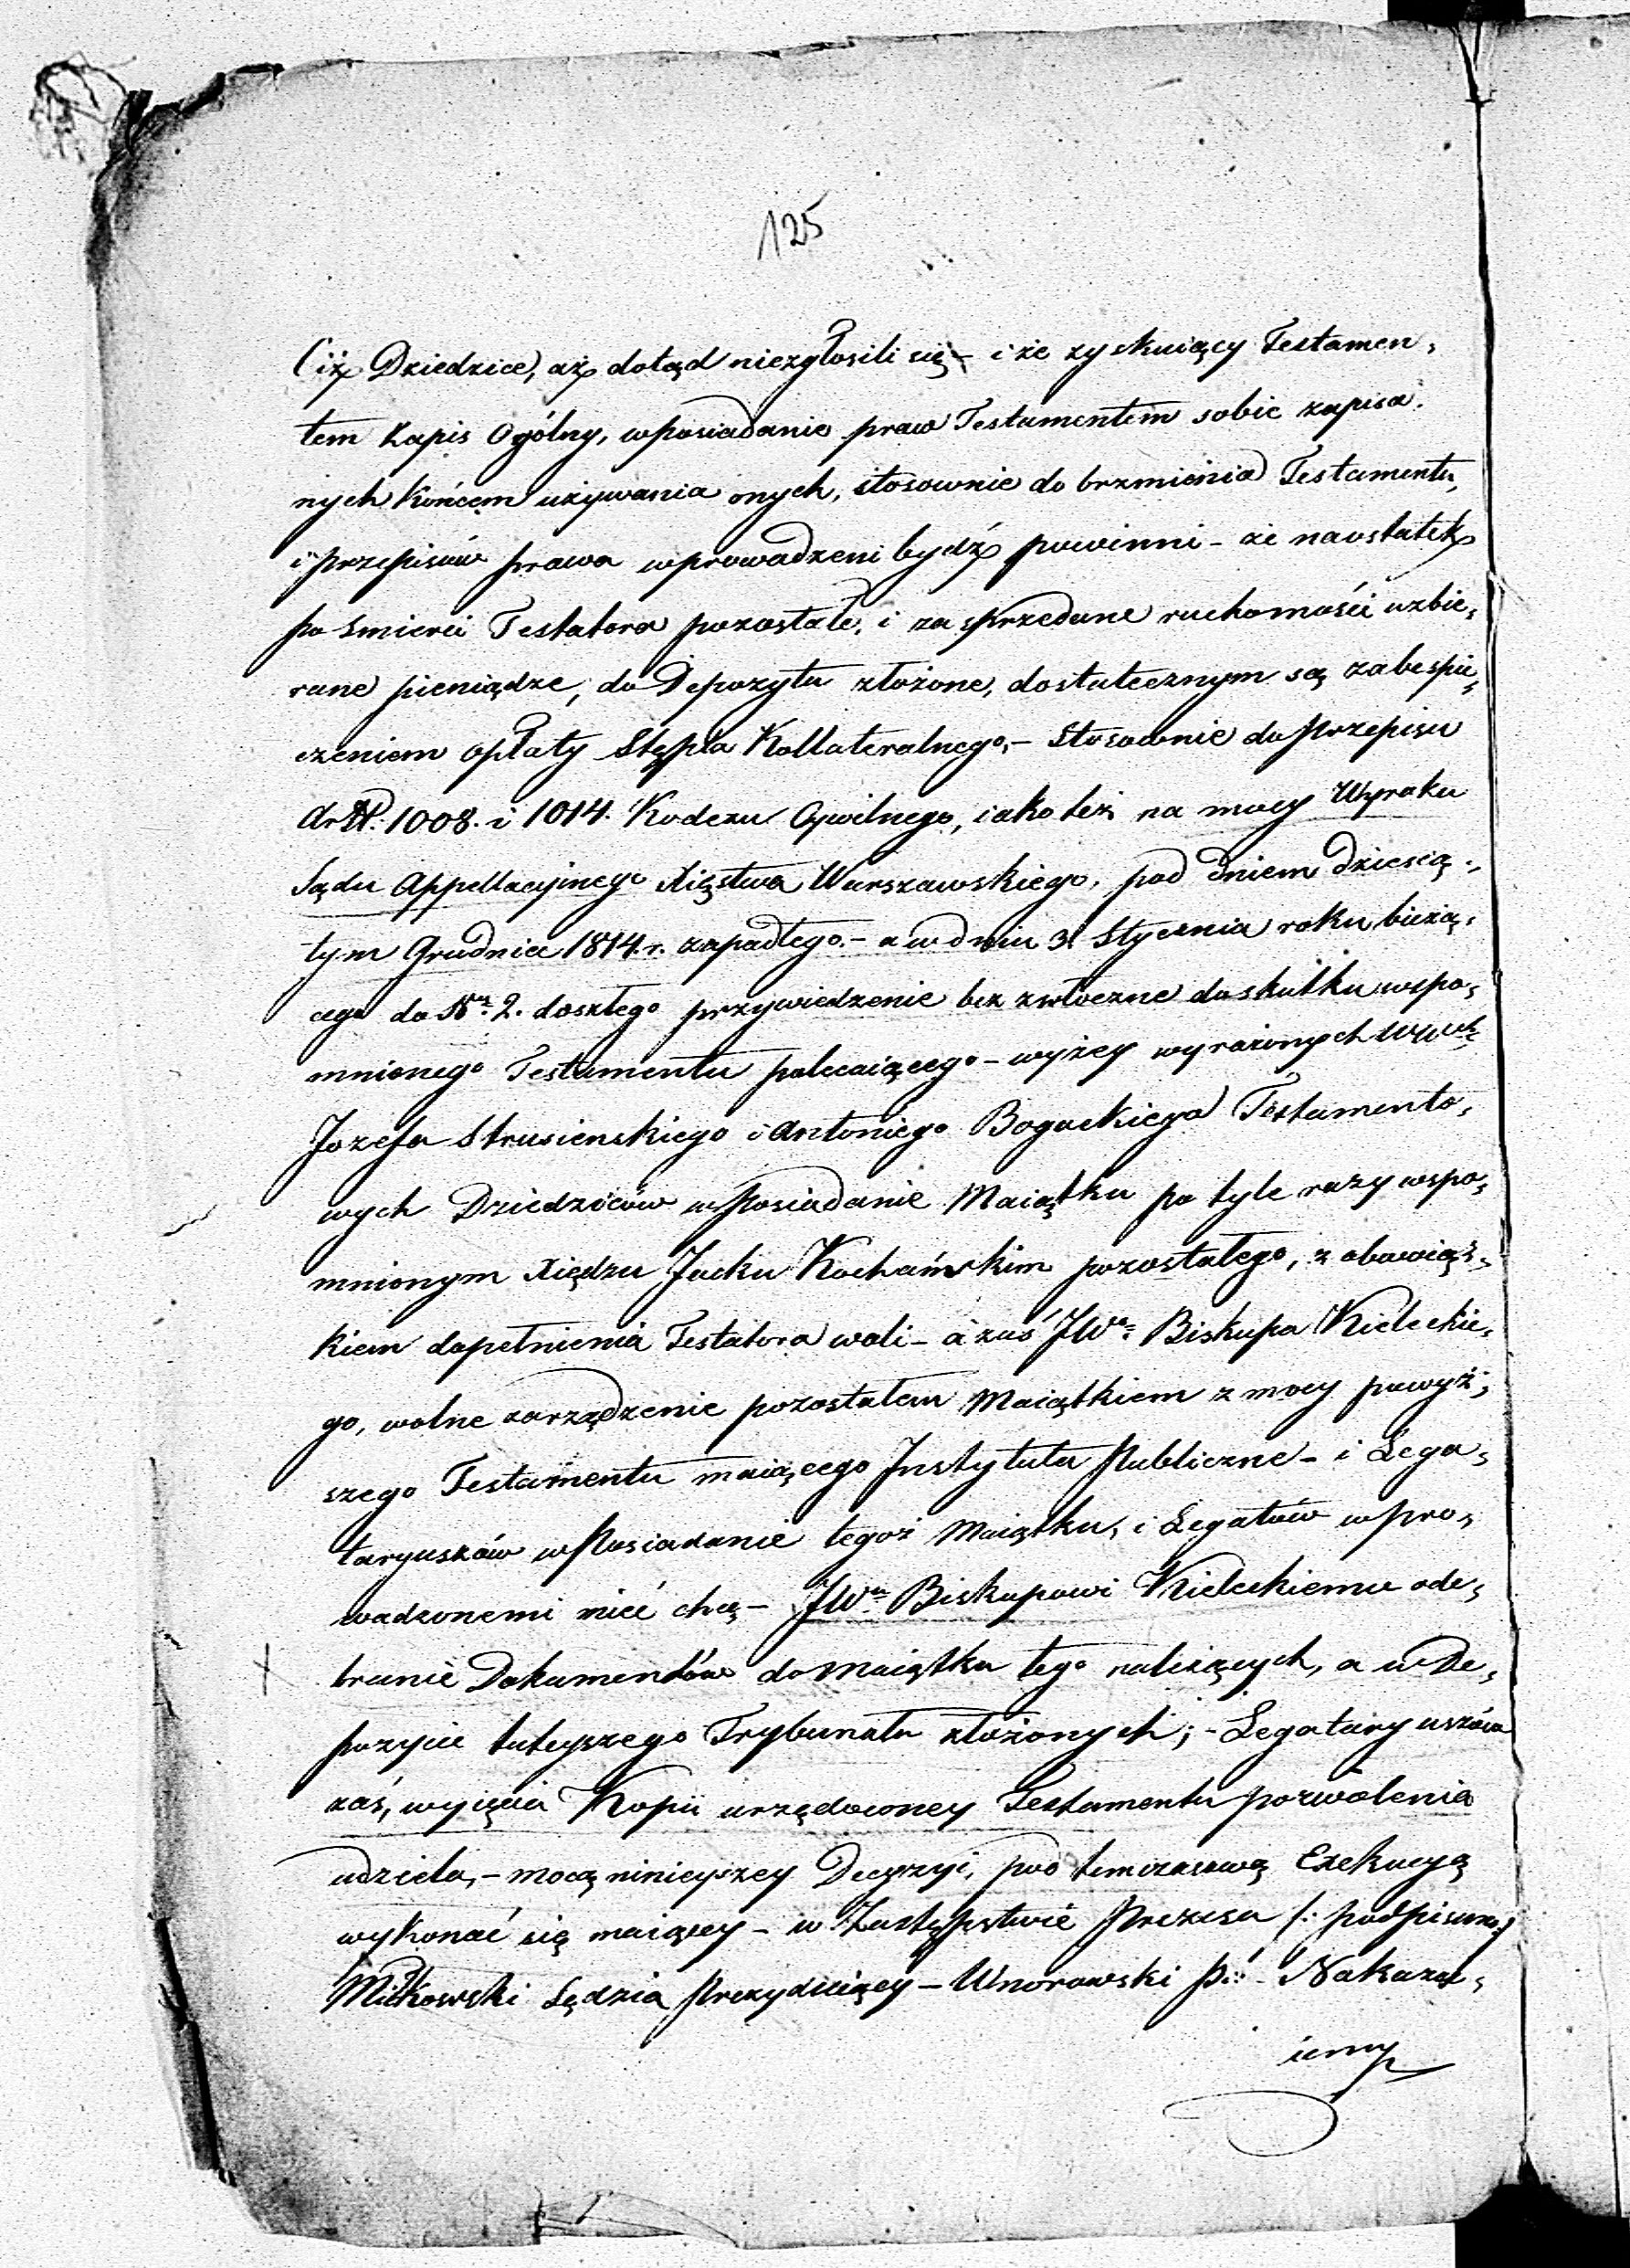 125
Ciż Dziedzice, aż dotąd niezgłosili się – i że zyskuiący Testamen,
tem Zapis Ogólny, w posiadanie praw Testamentem sobie zapisa,
nych końcem używania onych, stosownie do brzmienia Testamentu,
i przepisów prawa wprowadzeni bydź powinni – że naostatek
po śmierci Testatora pozostałe, i za sprzedane ruchomości uzbie,
rane pieniądze, do Depozytu złożone, dostatecznym są zabespie,
czeniem opłaty Stępla Kollateralnego, – Stosownie do Przepisu
Art: 1008. i 1014. Kodexu Cywilnego, iako też na mocy Wyroku
Sądu Appellacyinego Xięstwa Warszawskiego, pod dniem dziesią,
tym Grudnia 1814. r. zapadłego. – a w dniu 3. Stycznia roku bieżą,
cego do Nru 2. doszłego przywiedzenie bez zwłoczne do skutku wspo,
mnionego Testamentu polecaiącego – wyżey wyrażonych WWch
Jozefa Strusienskiego i Antoniego Bogackiego Testamento,
wych Dziedziców w Posiadanie Maiątku po tyle razy wspo,
mnionym Xiędzu Jacku Kochańskim pozostałego, z obowiąz,
kiem dopełnienia Testatora woli – a zaś JWo Biskupa Kieleckie,
go, wolne zarządzenie pozostałem Maiątkiem z mocy powyż,
szego Testamentu maiącego Instytuta Publiczne – i Lega,
taryuszów w Posiadanie tegoż Maiątku, i Legatów wpro,
wadzonemi mieć chcą – JWu Biskupowi Kieleckiemu ode,
branie Dokumentów do Maiątku tego należących, a w De,
pozycie tuteyszego Trybunału złożonych; – Legataryuszów
zaś, wyięcia Kopii urzędowney Testamentu pozwolenia
udziela, – mocą ninieyszey Decyzyi, pod temczasową Exekucyą
wykonać się maiącey – w Zastępstwie Prezesa /: podpisano:/
Miłkowski Sędzia Prezyduiący – Wnorowski P:: – Nakazu,
iemy